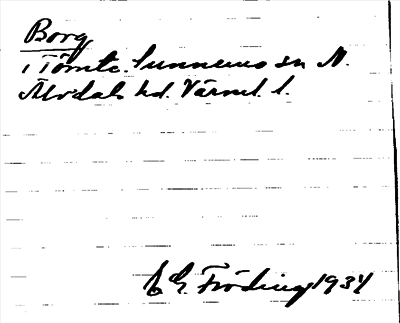 Borg
i Tömte. Sunnemo sn N.
Älvdals hd. Värml. l.
E G. Fröding 1934